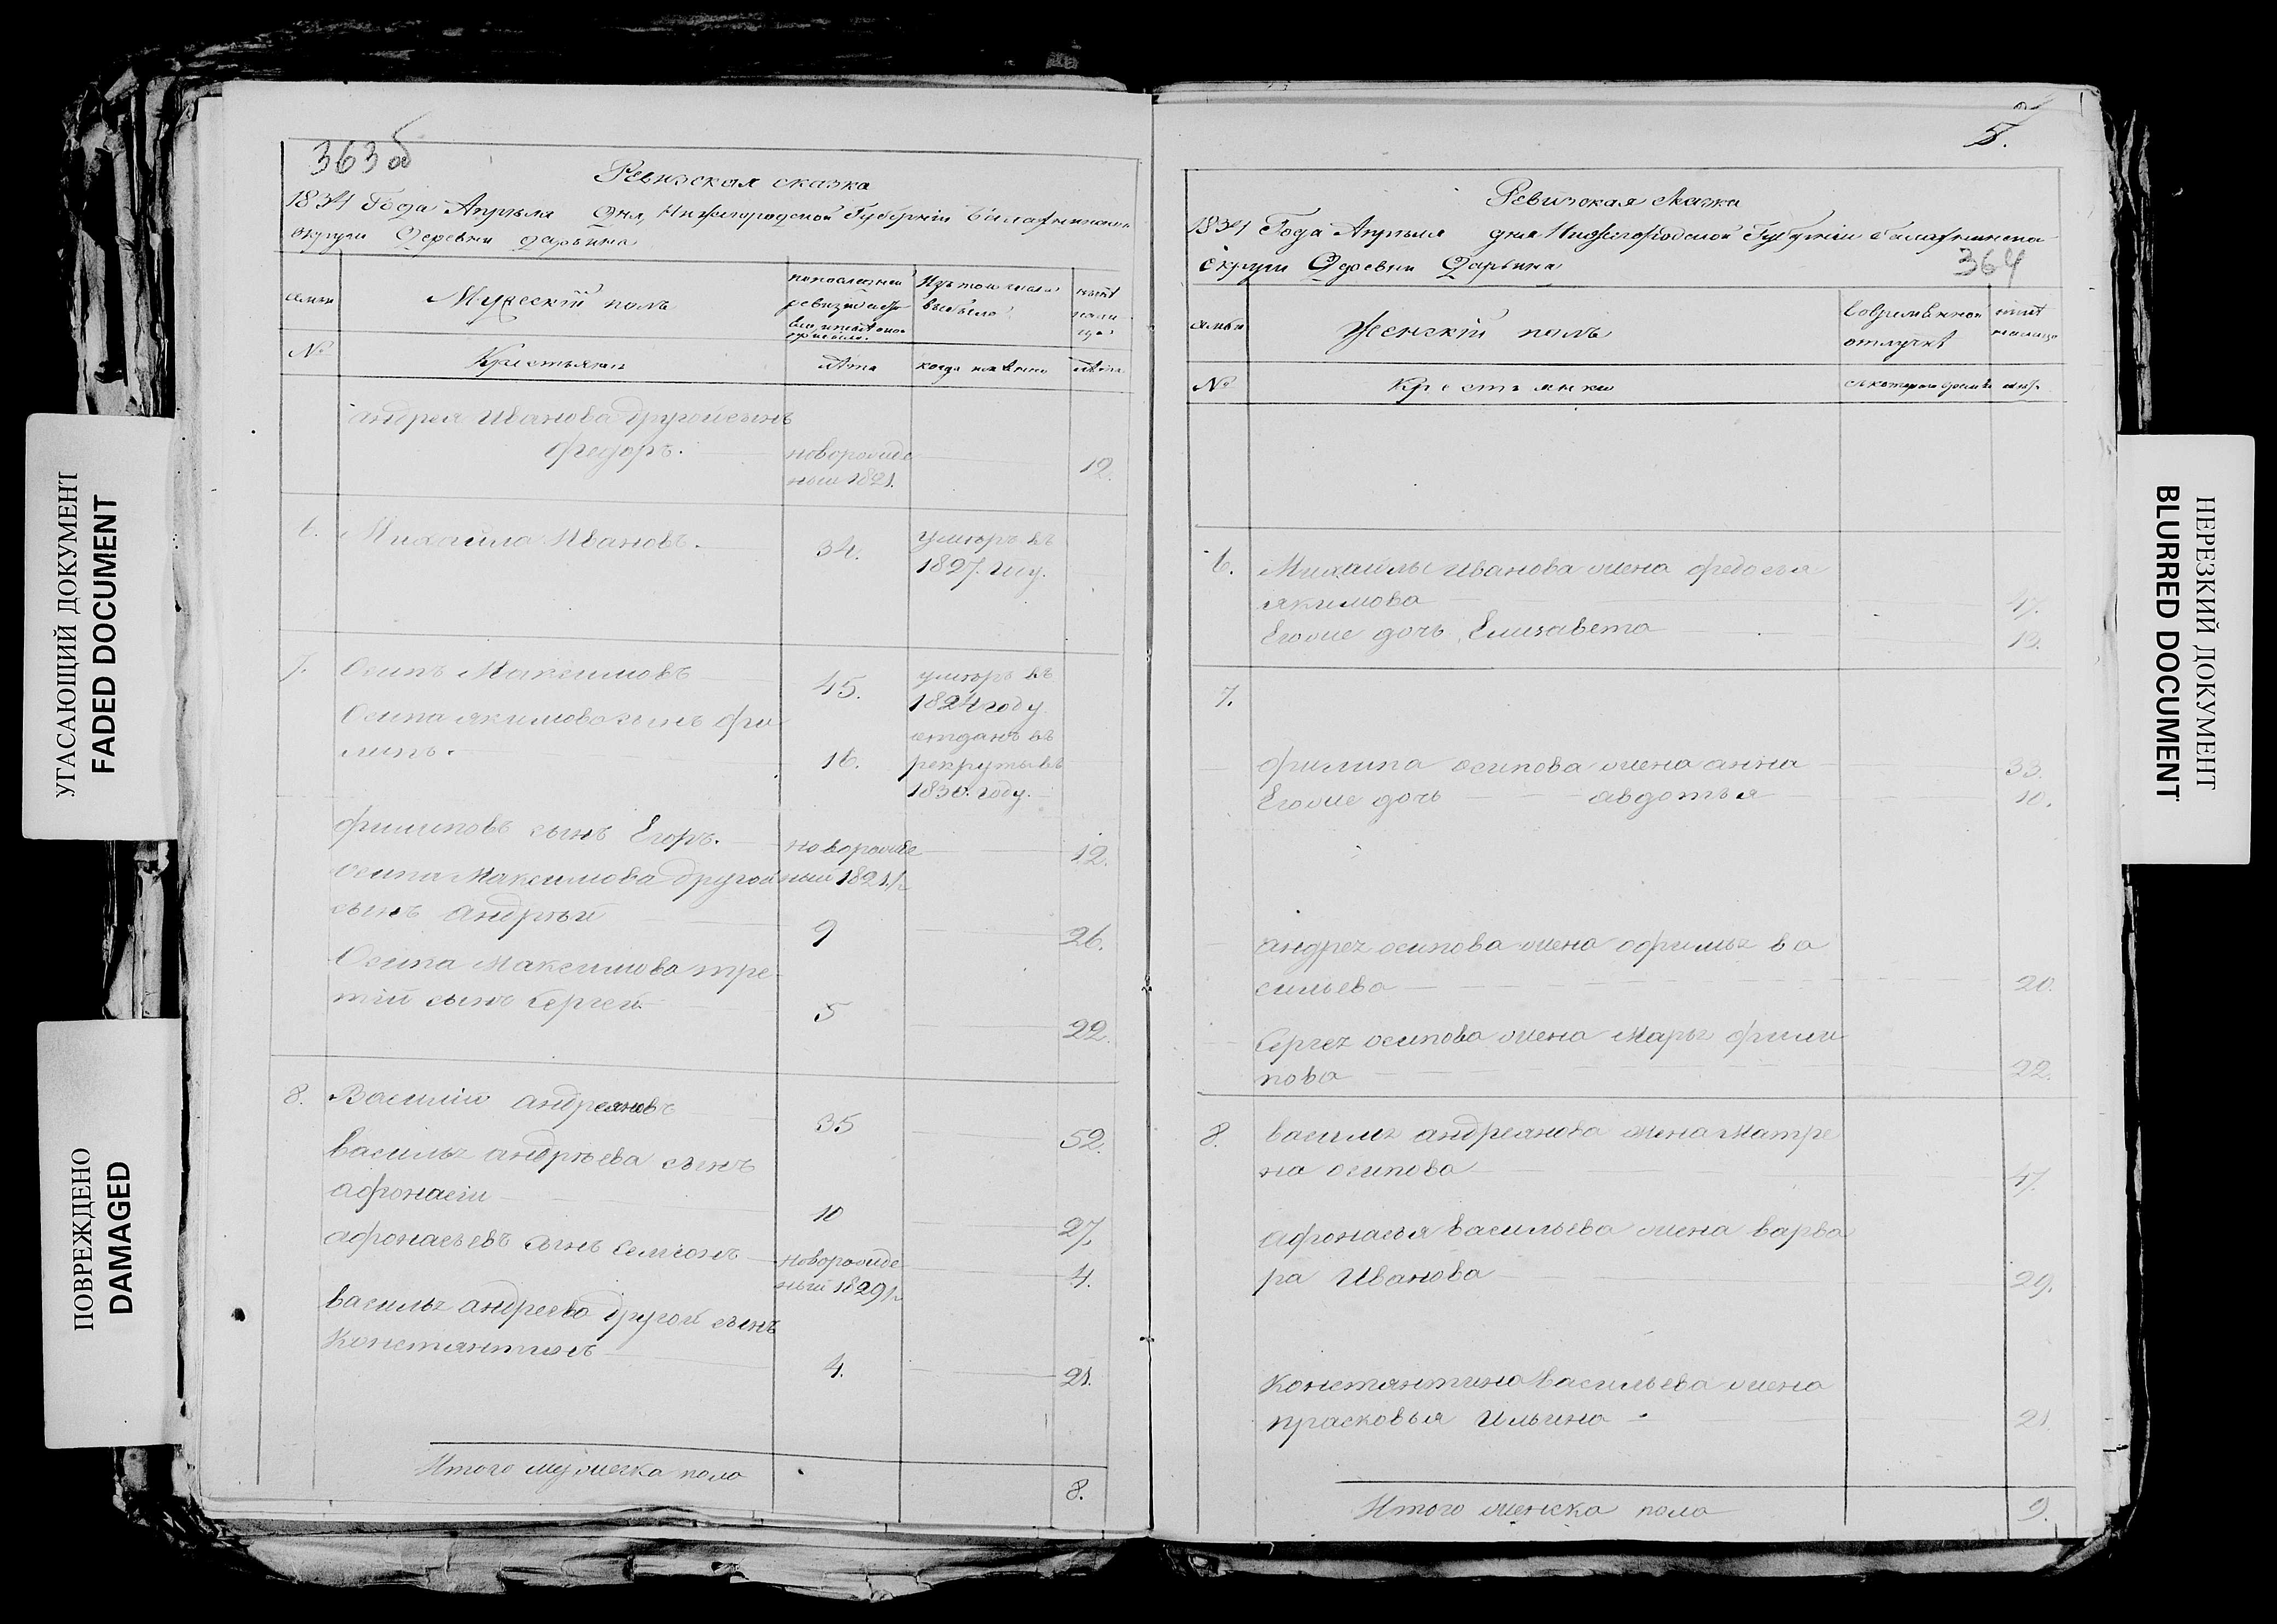 УГАСАЮЩИЙ ДОКУМЕНТ
FADED DOCUMENT
ПОВРЕЖДЕНО
DAMAGED
363 об
Ревизская сказка
1834 Года Апреля Дня, Нижегородской Губернии Балахнинской
округи Деревни Дарьина
семьи
Мужеский полъ
по последней
ревизии
Изъ того числа
выбыло
ныне
на ли
цо
№
Крестьяни
лета
когда именно
лета
андрея Иванова другой сынъ
федоръ.
новорожде
ный 1821.
12.
6. Михайла Ивановъ. 34. умеръ въ
1827. году.
7. Осипъ Максимовъ 45. умеръ въ
1824 году
Осипа якимова сынъ фи
липъ. 16. отданъ въ
рекруты въ
1830. году.
филиповъ сынъ Егоръ. новорожде
ный 1821. г. 12.
Осипа Максимова другой
сынъ андрей 9 26.
Осипа Максимова тре
тий сынъ Сергей 5 22.
8. Василий андреяновъ 35 52.
Василья андреева сынъ
афонасии 10 27.
афонасьевъ сынъ Семионъ новорожде
ный 1829 г. 4.
Василья андреева другой сынъ
Константинъ 4. 21.
Итого мужеска пола 8.
5.
Ревизская Сказка
1834 Года Апреля дня Нижегородской Губернии Балахнинска
округи Деревни Дарьина
364
семьи
Женский полъ
Во временной
отлучке
ныне
налицо
№
Крестьянки
съ котораго времени
лета
6. Михайлы Иванова жена федосья
якимова 47.
Его же дочь Елизавета 13.
7.
филипа осипова жена анна 33.
Его же дочь авдотья 10.
андрея осипова жена афимья ва
сильева 20.
Сергея осипова жена Марья фили
пова 22.
8. Василья андреянова жена Матре
на осипова 47.
афонасья Васильева жена варва
ра Иванова 29.
Константина Васильева жена
прасковья Ильина 21
Итого женска пола 9.
НЕРЕЗКИЙ ДОКУМЕНТ
BLURRED DOCUMENT